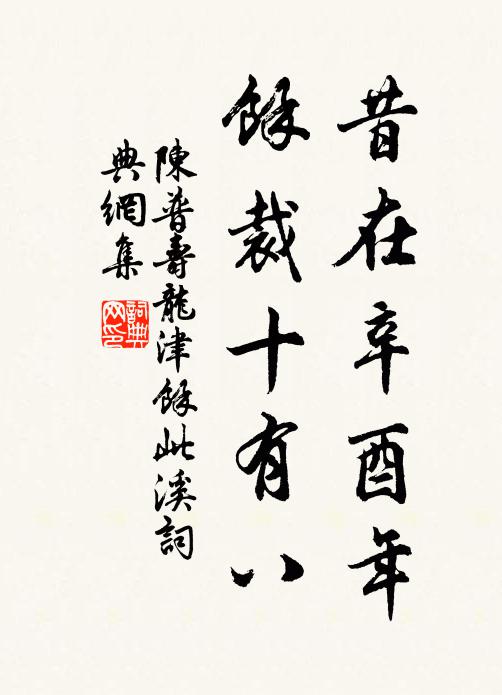 昔在辛酉年
餘裁十有八
陳普壽龍津餘此溪詞
典網集
詞典
网印